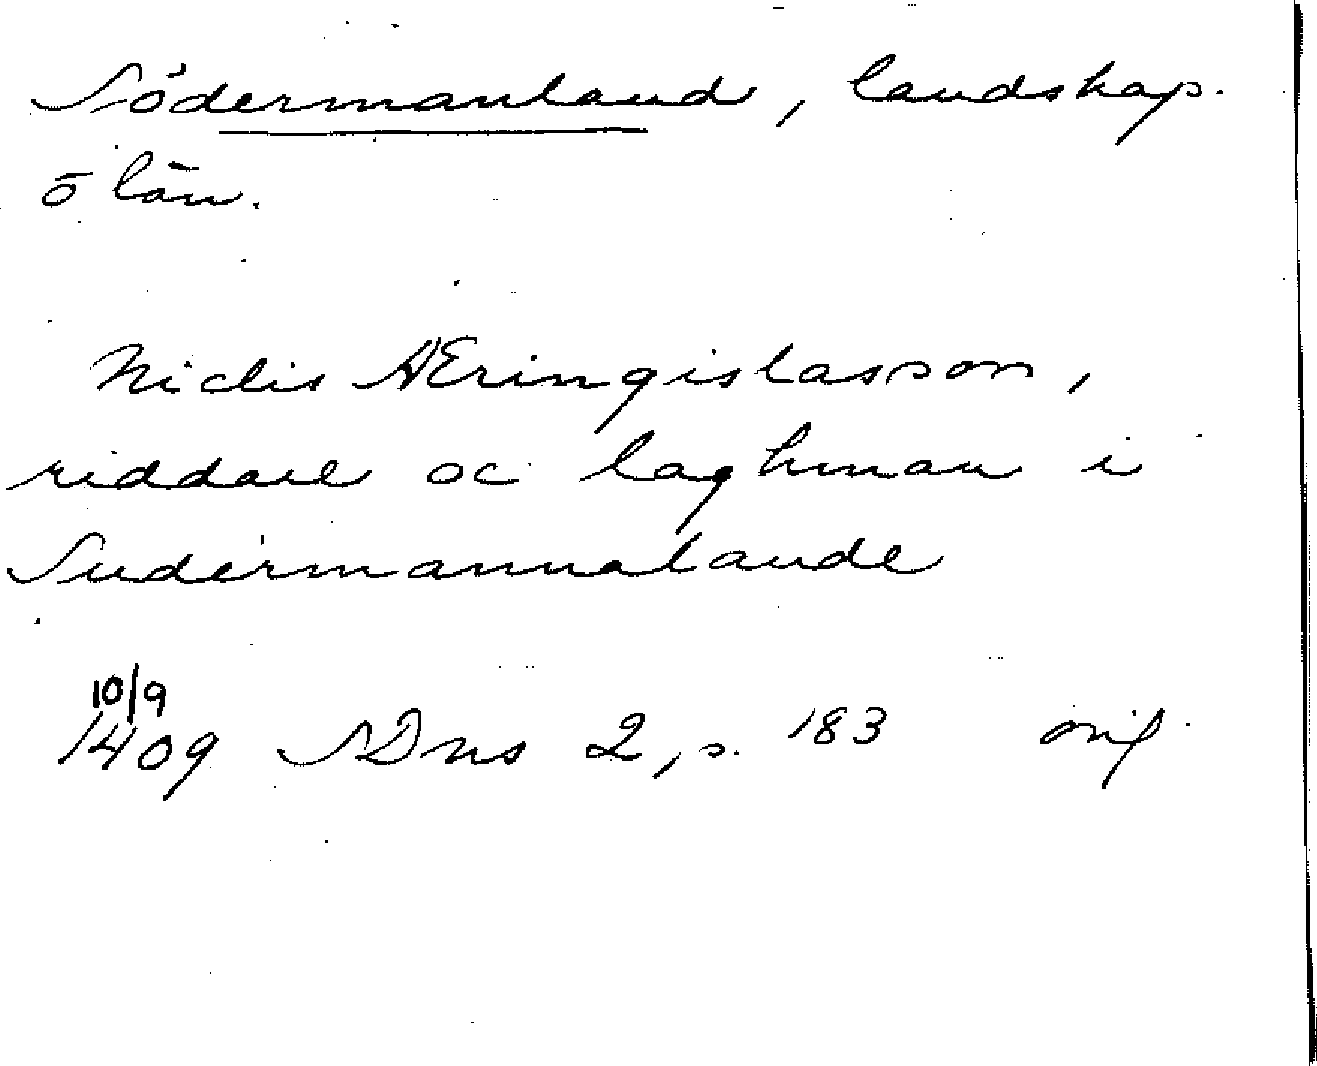 Södermanland, landskap.
o län.
Niclis AEringislasson,
riddare oc laghman i
Sudermannalande
10/9
1409 SDns 2, s. 183 orig.